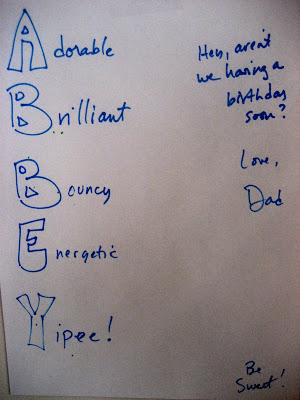 Adorable
Brilliant
Bouncy
Energetic
Yipee!
Hey, aren't
we having a
birthday
soon?
Love,
Dad
Be
Sweet!